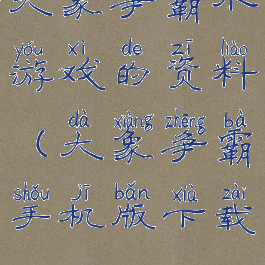 大象争霸来
yóu xì de zī liào
游戏的资料
dà xiàng zhēng bà
（大象争霸
shǒu jī bǎn xià zài
手机版下载